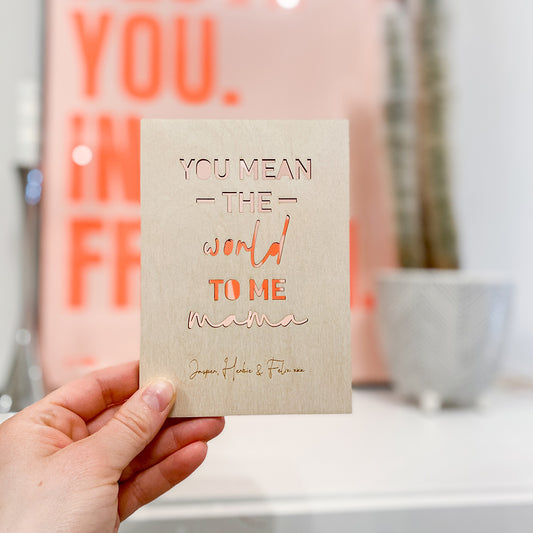 YOU.
IN
YOU MEAN
– THE –
world
TO ME
mama
Jasper, Herbie & Felix xxx